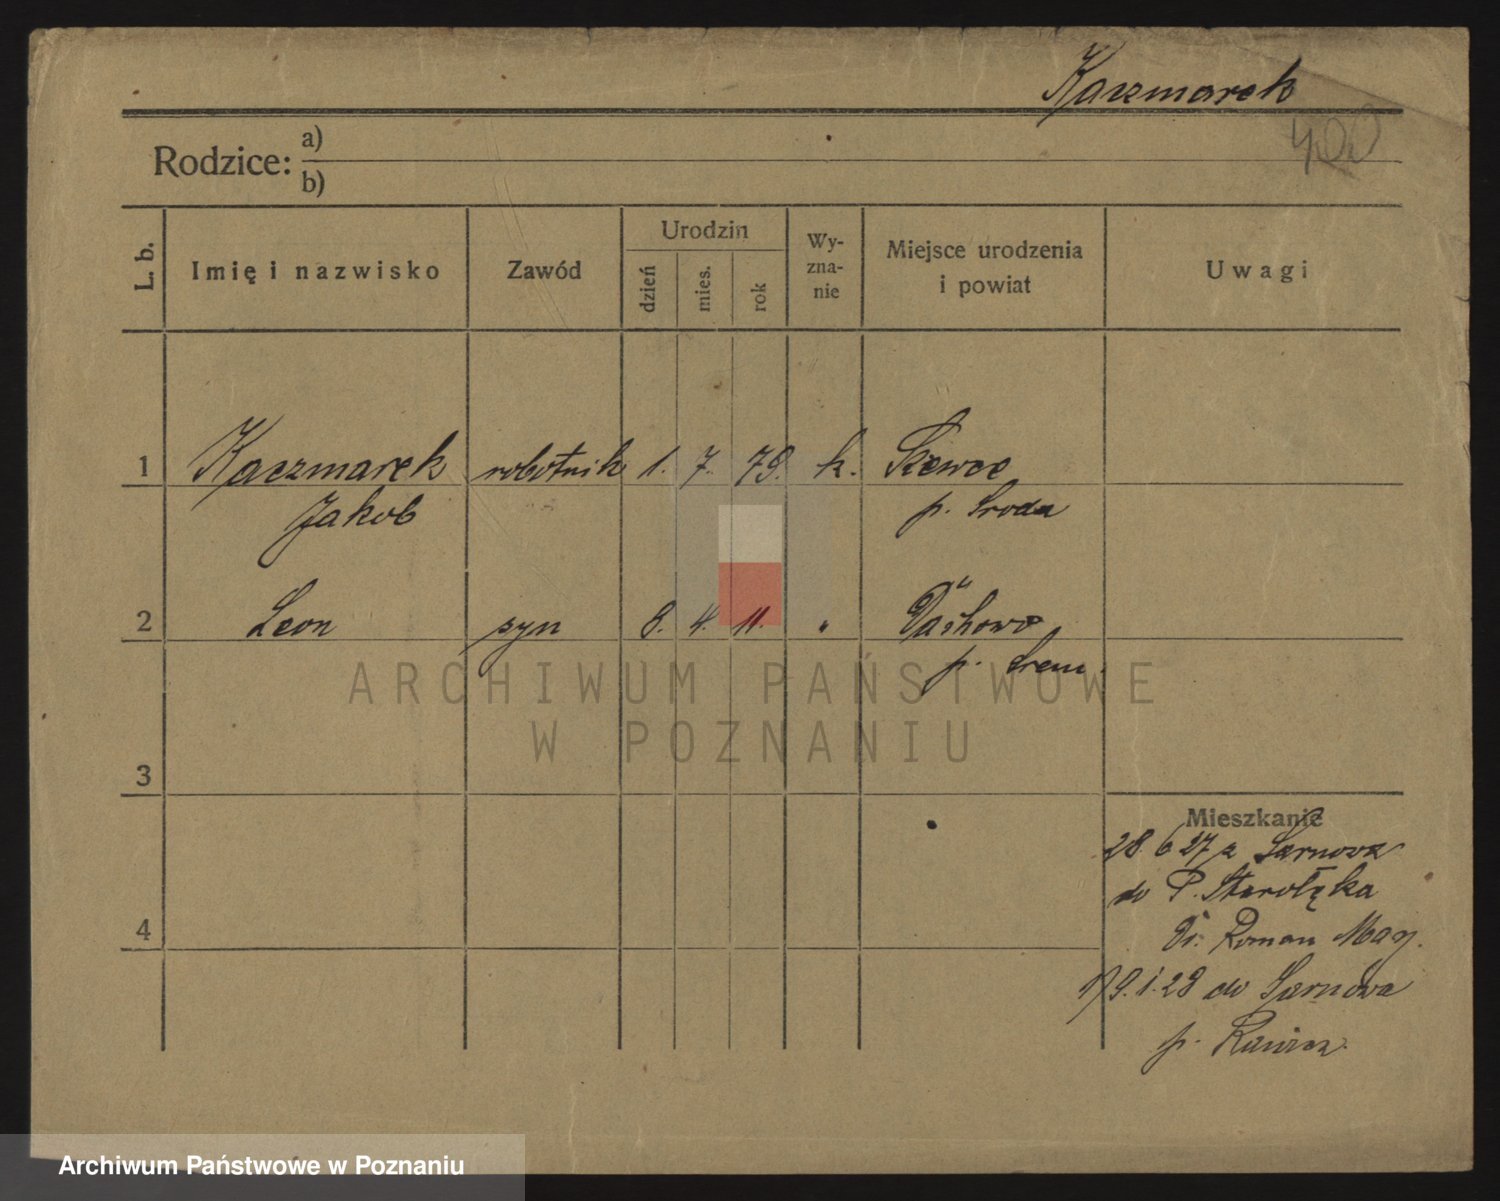 Kaczmarek
400
Rodzice: a)
b)
L. b.
Imię i nazwisko
Zawód
Urodzin
dzień
mies.
rok
Wy-
zna-
nie
Miejsce urodzenia
i powiat
Uwagi
1 Kaczmarek robotnik 1. 7. 79. k. Szewce
Jakob p. Sroda
2 Leon syn 8. 4. 11. " 
p. Srem.
ARCHIWUM PAŃSTWOWE
W POZNANIU
3
Mieszkanie
28. 6 27 z Sarnowa
do P. Starołęka
Roman May.
19. 1. 28 do Sarnowa
4
p. Rawicz.
Archiwum Państwowe w Poznaniu